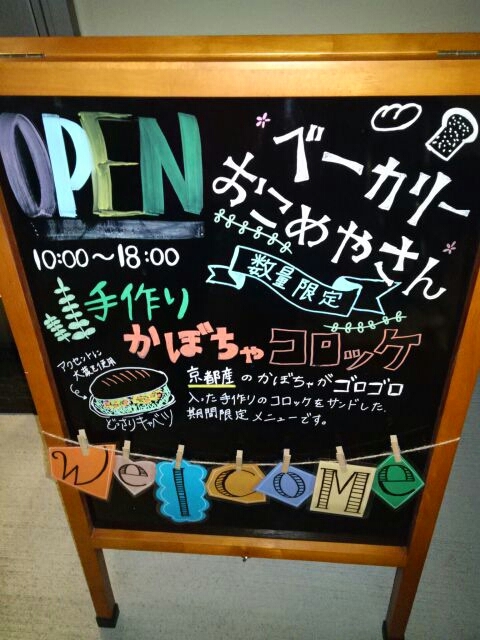 OPEN
ベーカリー
おこめやさん
10:00〜18:00
数量限定
手作り
かぼちゃコロッケ
アクセントに
大葉を使用
どっさりキャベツ
京都産のかぼちゃがゴロゴロ
入った手作りのコロッケをサンドした、
期間限定メニューです。
WelCOMe